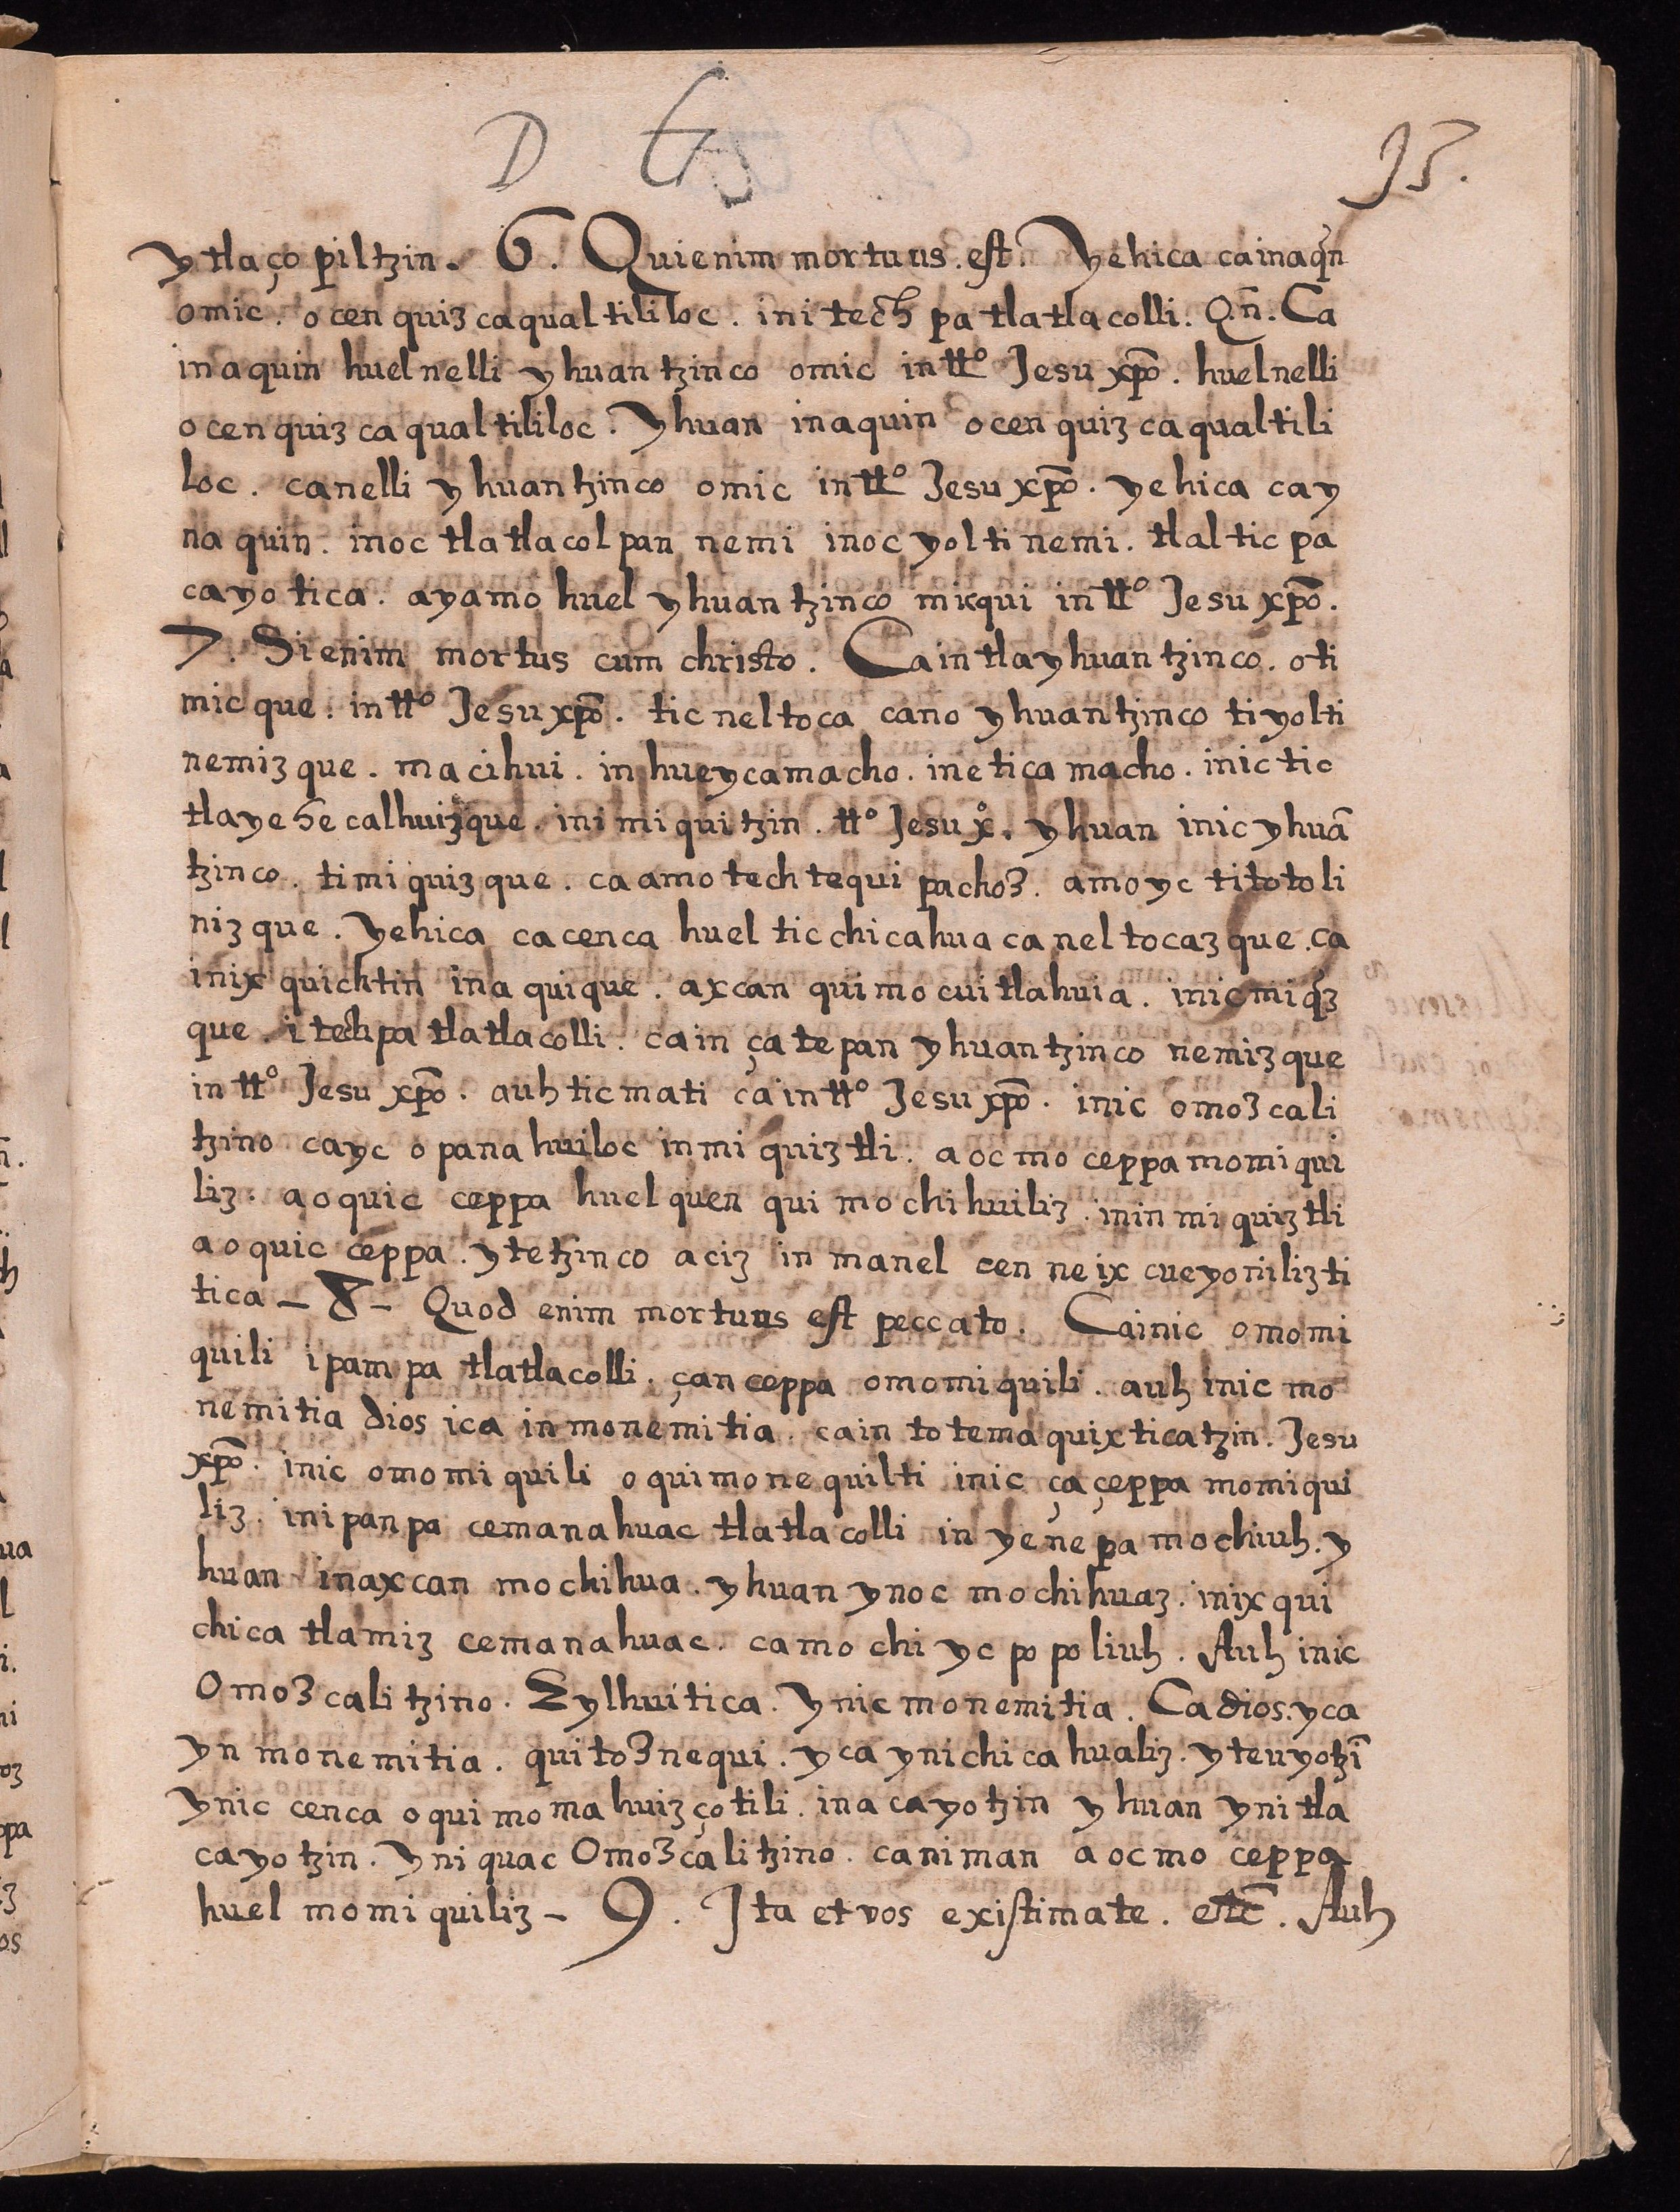 D
95.
ytlaço piltzin. 6. Qui enim mortuus. est. yehica ca inaqn̄
omic. o cen quiz ca qual tili loc. ini tech pa tlatla colli. Q.n̄. Ca
inaquin huel nelli yhuan tzinco omic in tt̄º Jesu xp̄o. huel nelli
o cen quiz ca qual tili loc. yhuan inaquin o cen quiz ca qual tili
loc. ca nelli yhuan tzinco omic in tt̄º Jesu xp̄o. yehica ca y
na quin. inoc tlatlacol pan nemi inoc yol ti nemi. tlal tic pa
cayo tica. ayamo huel yhuan tzinco mikqui in tt̄º Jesu xp̄o.
7. Si enim mortus cum christo. Ca in tla yhuan tzinco. oti
mic que. in tt̄º Jesu xp̄o. tic nel toca ca no yhuan tzinco ti yol ti
nemiz que. ma cihui. in huey camacho. in etica macho. inic tic
tla yehe calhuizque. ini mi qui tzin. tt̄º Jesu xº. yhuan inic yhuā
tzinco. ti mi quiz que. ca amo tech tequi pachoz. amo yc ti toto li
niz que. yehica ca cenca huel tic chi cahua ca nel tocaz que. ca
inix quichtin ina qui que. axcan qui mo cui tlahuia. inic miq̄z
que. i tech pa tlatla colli. ca in ça te pan yhuan tzinco nemiz que
in tt̄º Jesu xp̄o. auh tic mati ca in tt̄º Jesu xp̄o. inic omoz cali
tzino ca yc o pana huiloc in mi quiz tli. a oc mo ceppa momi qui
liz. a o quic ceppa huel quen qui mo chi huiliz. inin mi quiz tli
a o quic ceppa. yte tzinco aciz in manel cen ne ix cueyoniliz ti
tica - 8 - Quod enim mortuus est peccato. Ca inic omomi
quili i pam pa tlatla colli. çan ceppa omomi quili. auh inic mo
nemi tia dios ica in monemi tia. ca in to tema quix tica tzin. Jesu
xp̄o. inic omomi quili o qui mo ne quilti inic ça çeppa momi qui
liz. ini pan pa cemana huac tlatla colli in ye ne pa mo chiuh. y
huan in axcan mo chi hua. yhuan yn oc mo chi huaz. inix qui
chi ca tlamiz cemana huac. ca mo chi yc po po liuh. Auh inic
Omoz cali tzino. Eylhui tica. ynic monemi tia. Ca dios. yca
yn monemi tia. qui toz nequi. yca yni chi ca hualiz. yteuyotzī
ynic cenca o qui mo ma huiz ço tili. ina cayo tzin yhuan yni tla
cayo tzin. yni quac Omoz cali tzino. ca niman a oc mo ceppa
huel momi quiliz - 9. Ita et vos existimate. etc̄. Auh